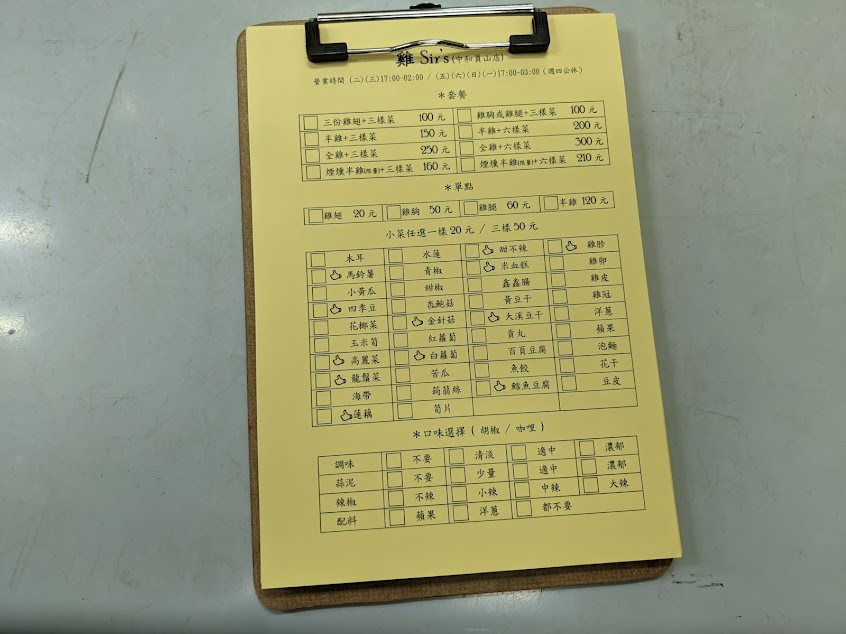 雞 Sir's (中和員山店)
營業時間 (二)(三)17:00-02:00 / (五)(六)(日)(一)17:00-03:00 (週四公休)
*套餐
三份雞翅+三樣菜 100 元 雞胸或雞腿+三樣菜 100 元
半雞+三樣菜 150 元 半雞+六樣菜 200 元
全雞+三樣菜 250 元 全雞+六樣菜 300 元
煙燻半雞(限量)+三樣菜 160 元 煙燻半雞(限量)+六樣菜 210 元
*單點
雞翅 20 元 雞胸 50 元 雞腿 60 元 半雞 120 元
小菜任選一樣 20 元 / 三樣 50 元
木耳 水蓮 甜不辣 雞胗
馬鈴薯 青椒 米血糕 雞卵
小黃瓜 甜椒 鑫鑫腸 雞皮
四季豆 杏鮑菇 黃豆干 雞冠
花椰菜 金針菇 大溪豆干 洋蔥
玉米筍 紅蘿蔔 貢丸 蘋果
高麗菜 白蘿蔔 百頁豆腐 泡麵
龍鬚菜 苦瓜 魚餃 花干
海帶 蒟蒻絲 鱈魚豆腐 豆皮
蓮藕 筍片
*口味選擇 ( 胡椒 / 咖哩 )
調味 不要 清淡 適中 濃郁
蒜泥 不要 少量 適中 濃郁
辣椒 不辣 小辣 中辣 大辣
配料 蘋果 洋蔥 都不要